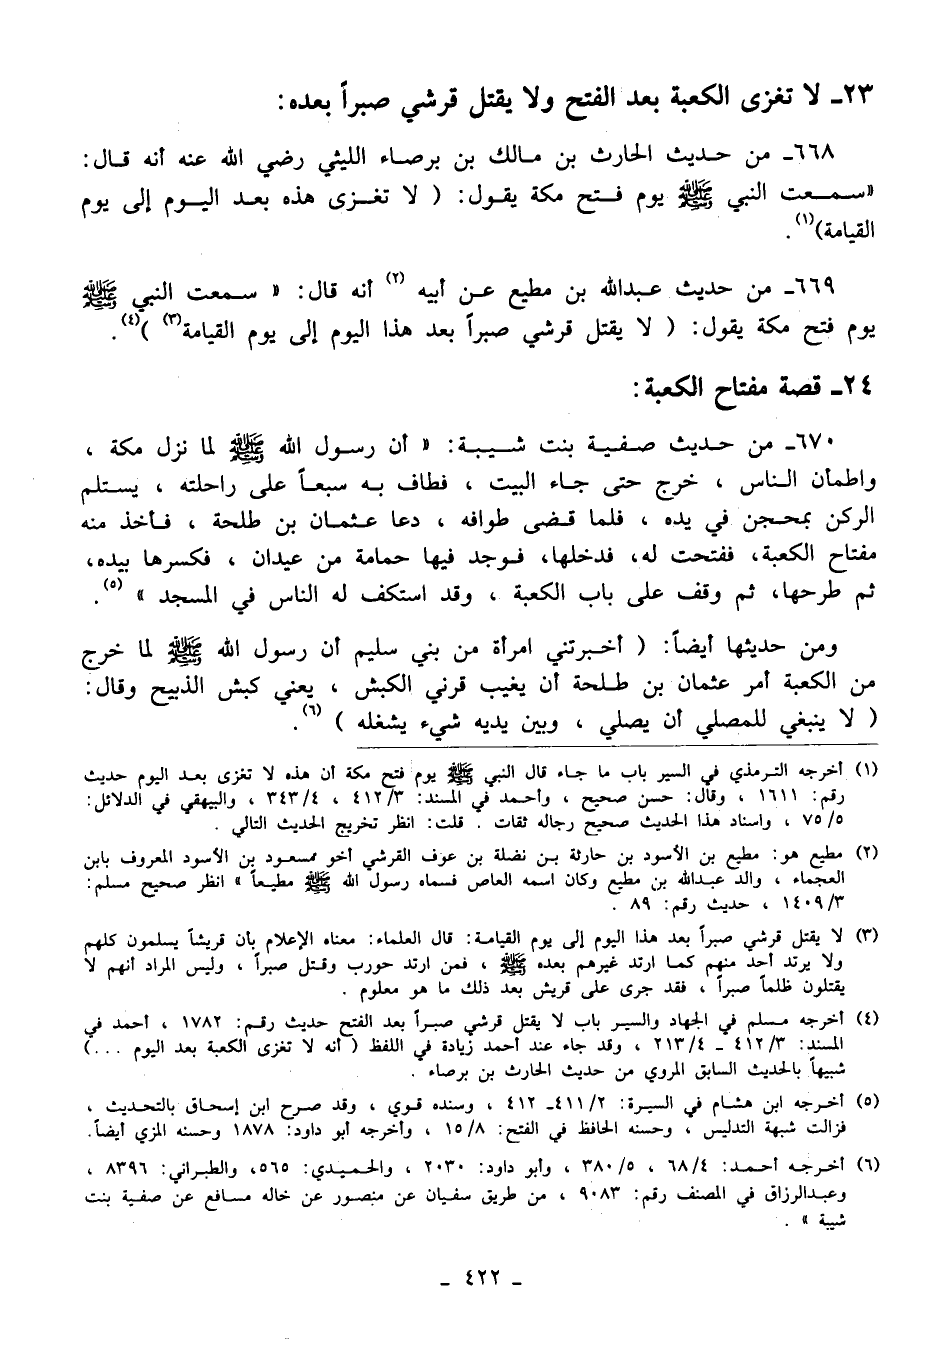 ٢٣ـ لا تغزى الكعبة بعد الفتح ولا يقتل قرشي صبراً بعده:
٦٦٨ـ من حديث الحارث بن مالك بن برصاء الليثي رضي الله عنه أنه قال:
«سمعت النبي ﷺ يوم فتح مكة يقول: ( لا تغزى هذه بعد اليوم إلى يوم
القيامة)(١).
٦٦٩ـ من حديث عبدالله بن مطيع عن أبيه (٢) أنه قال: « سمعت النبي ﷺ
يوم فتح مكة يقول: ( لا يقتل قرشي صبراً بعد هذا اليوم إلى يوم القيامة(٣) )(٤).
٢٤ـ قصة مفتاح الكعبة:
٦٧٠ـ من حديث صفية بنت شيبة: « أن رسول الله ﷺ لما نزل مكة ،
واطمأن الناس ، خرج حتى جاء البيت ، فطاف به سبعاً على راحلته ، يستلم
الركن بمحجن في يده ، فلما قضى طوافه ، دعا عثمان بن طلحة ، فأخذ منه
مفتاح الكعبة، ففتحت له، فدخلها، فوجد فيها حمامة من عيدان ، فكسرها بيده،
ثم طرحها، ثم وقف على باب الكعبة ، وقد استكف له الناس في المسجد » (٥).
ومن حديثها أيضاً: ( أخبرتني امرأة من بني سليم أن رسول الله ﷺ لما خرج
من الكعبة أمر عثمان بن طلحة أن يغيب قرني الكبش ، يعني كبش الذبيح وقال:
( لا ينبغي للمصلي أن يصلي ، وبين يديه شيء يشغله ) (٦).
(١) أخرجه الترمذي في السير باب ما جاء قال النبي ﷺ يوم فتح مكة أن هذه لا تغزى بعد اليوم حديث
رقم: ١٦١١ ، وقال: حسن صحيح ، وأحمد في المسند: ٤١٢/٣ ، ٣٤٣/٤ ، والبيهقي في الدلائل:
٧٥/٥ ، واسناد هذا الحديث صحيح رجاله ثقات . قلت: انظر تخريج الحديث التالي .
(٢) مطيع هو: مطيع بن الأسود بن حارثة بن نضلة بن عوف القرشي أخو مسعود بن الأسود المعروف بابن
العجماء ، والد عبدالله بن مطيع وكان اسمه العاص فسماه رسول الله ﷺ مطيعاً » انظر صحيح مسلم:
١٤٠٩/٣ ، حديث رقم: ٨٩ .
(٣) لا يقتل قرشي صبراً بعد هذا اليوم إلى يوم القيامة: قال العلماء: معناه الإعلام بأن قريشاً يسلمون كلهم
ولا يرتد أحد منهم كما ارتد غيرهم بعده ﷺ ، فمن ارتد حورب وقتل صبراً ، وليس المراد أنهم لا
يقتلون ظلماً صبراً ، فقد جرى على قريش بعد ذلك ما هو معلوم .
(٤) أخرجه مسلم في الجهاد والسير باب لا يقتل قرشي صبراً بعد الفتح حديث رقم: ١٧٨٢ ، أحمد في
المسند: ٤١٢/٣ ـ ٢١٣/٤ ، وقد جاء عند أحمد زيادة في اللفظ ( أنه لا تغزى الكعبة بعد اليوم ...)
شبيهاً بالحديث السابق المروي من حديث الحارث بن برصاء .
(٥) أخرجه ابن هشام في السيرة: ٤١١/٢ـ ٤١٢ ، وسنده قوي ، وقد صرح ابن إسحاق بالتحديث ،
فزالت شبهة التدليس ، وحسنه الحافظ في الفتح: ١٥/٨ ، وأخرجه أبو داود: ١٨٧٨ وحسنه المزي أيضاً.
(٦) أخرجه أحمد: ٦٨/٤ ، ٣٨٠/٥ ، وأبو داود: ٢٠٣٠ ، والحميدي: ٥٦٥، والطبراني: ٨٣٩٦ ،
وعبدالرزاق في المصنف رقم: ٩٠٨٣ ، من طريق سفيان عن منصور عن خاله مسافع عن صفية بنت
شيبة » .
ـ ٤٢٢ ـ